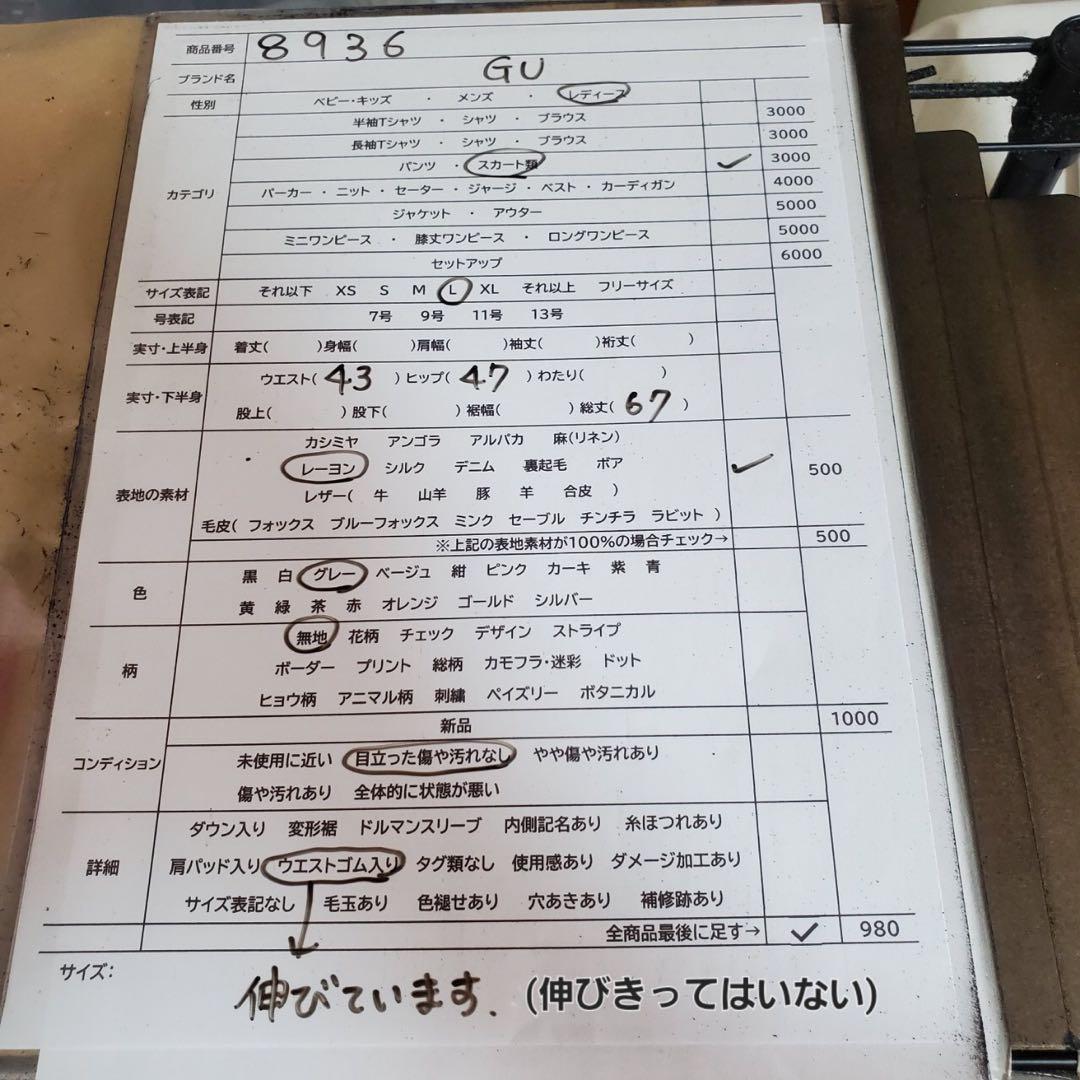 商品番号 8936
ブランド名 GU
性別 ベビー・キッズ ・ メンズ ・ レディース
半袖Tシャツ ・ シャツ ・ ブラウス 3000
長袖Tシャツ ・ シャツ ・ ブラウス 3000
パンツ ・ スカート類 ✓ 3000
カテゴリ パーカー ・ ニット ・ セーター ・ ジャージ ・ ベスト ・ カーディガン 4000
ジャケット ・ アウター 5000
ミニワンピース ・ 膝丈ワンピース ・ ロングワンピース 5000
セットアップ 6000
サイズ表記 それ以下 XS S M L XL それ以上 フリーサイズ
号表記 7号 9号 11号 13号
実寸・上半身 着丈( )身幅( )肩幅( )袖丈( )裄丈( )
実寸・下半身 ウエスト( 43 )ヒップ( 47 )わたり( )
股上( )股下( )裾幅( )総丈( 67 )
カシミヤ アンゴラ アルパカ 麻(リネン)
表地の素材 レーヨン シルク デニム 裏起毛 ボア ✓ 500
レザー( 牛 山羊 豚 羊 合皮 )
毛皮( フォックス ブルーフォックス ミンク セーブル チンチラ ラビット )
※上記の表地素材が100%の場合チェック→ 500
色 黒 白 グレー ベージュ 紺 ピンク カーキ 紫 青
黄 緑 茶 赤 オレンジ ゴールド シルバー
無地 花柄 チェック デザイン ストライプ
柄 ボーダー プリント 総柄 カモフラ・迷彩 ドット
ヒョウ柄 アニマル柄 刺繍 ペイズリー ボタニカル
新品 1000
コンディション 未使用に近い 目立った傷や汚れなし やや傷や汚れあり
傷や汚れあり 全体的に状態が悪い
ダウン入り 変形裾 ドルマンスリーブ 内側記名あり 糸ほつれあり
詳細 肩パッド入り ウエストゴム入り タグ類なし 使用感あり ダメージ加工あり
サイズ表記なし 毛玉あり 色褪せあり 穴あきあり 補修跡あり
全商品最後に足す→ ✓ 980
サイズ:
伸びています. (伸びきってはいない)